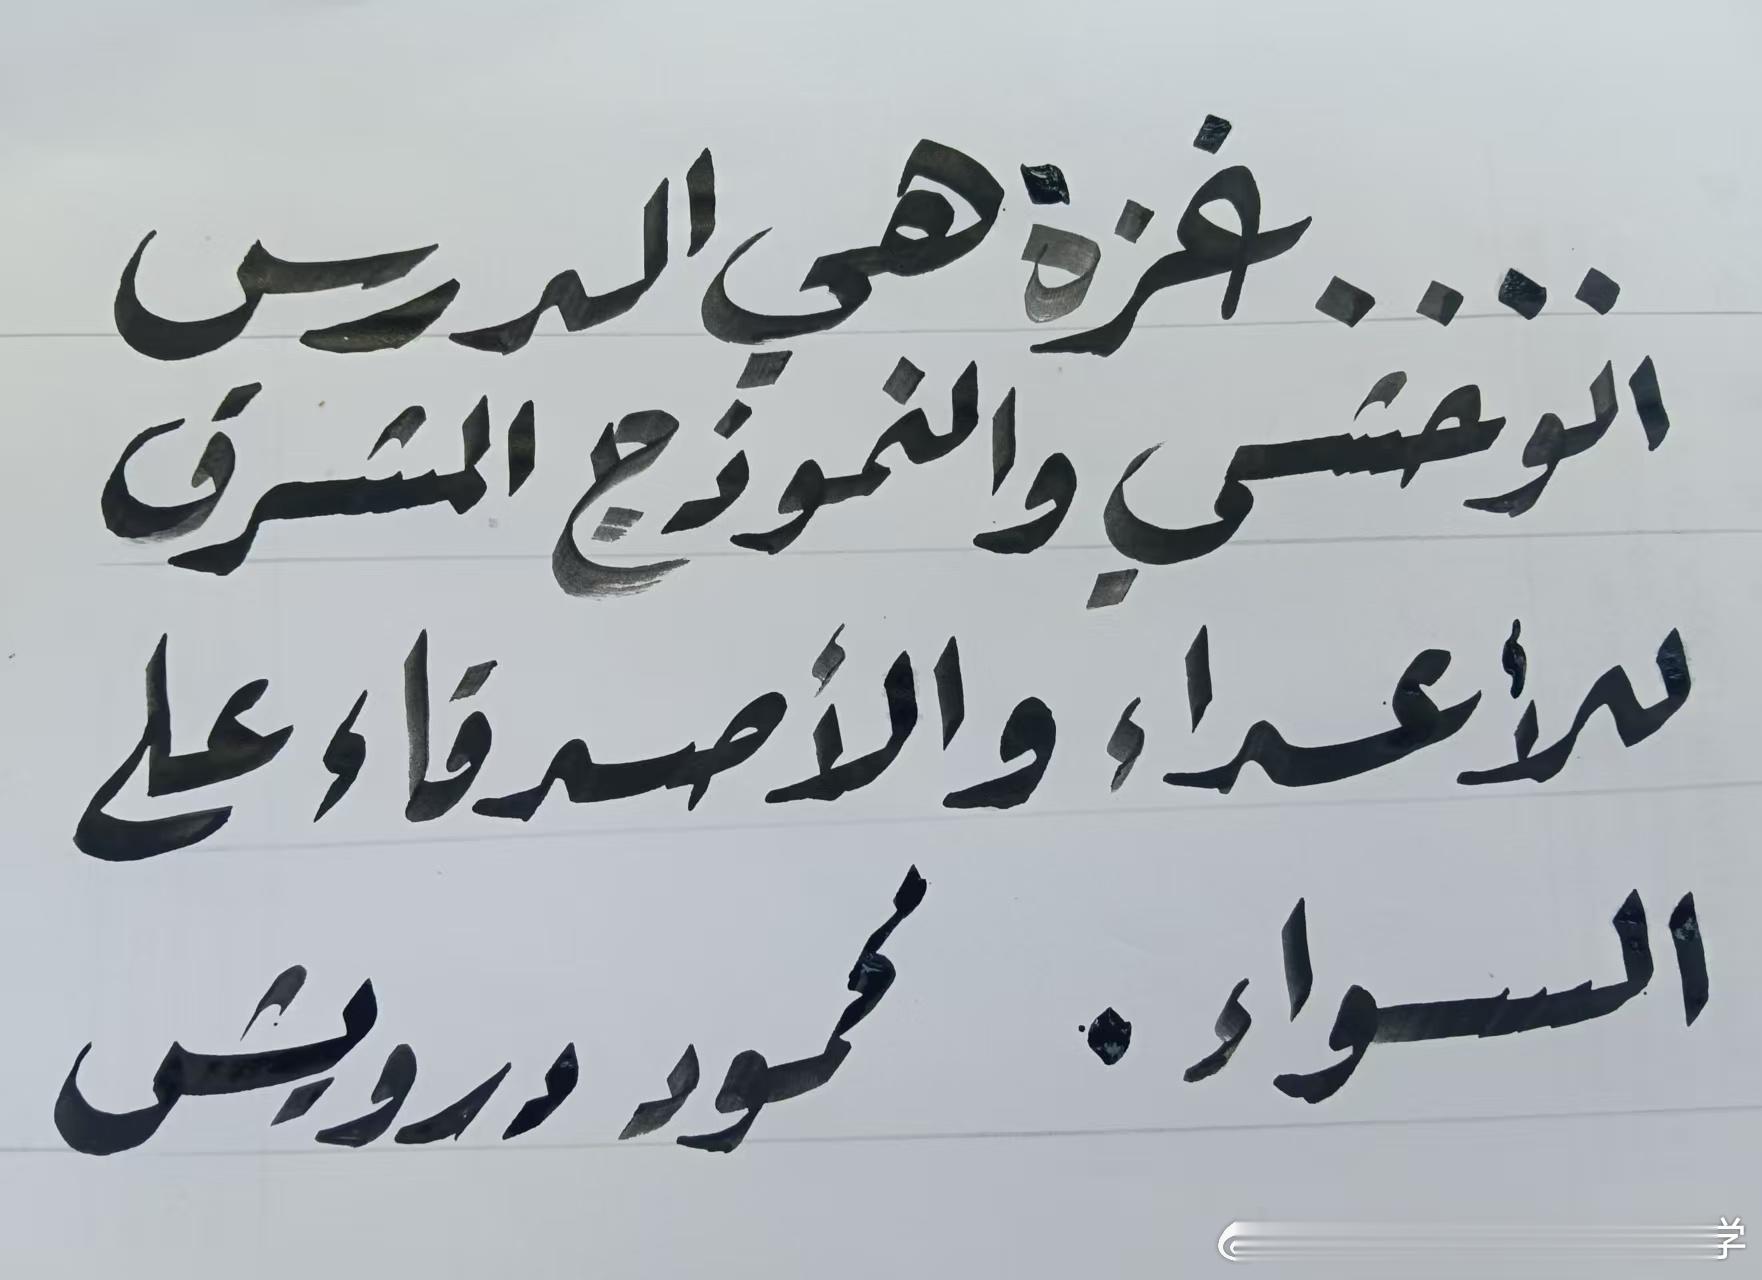 ....غزة هي الدرس
الوحشي والنموذج المشرق
للأعداء والأصدقاء على
السواء. محمود درويش
学